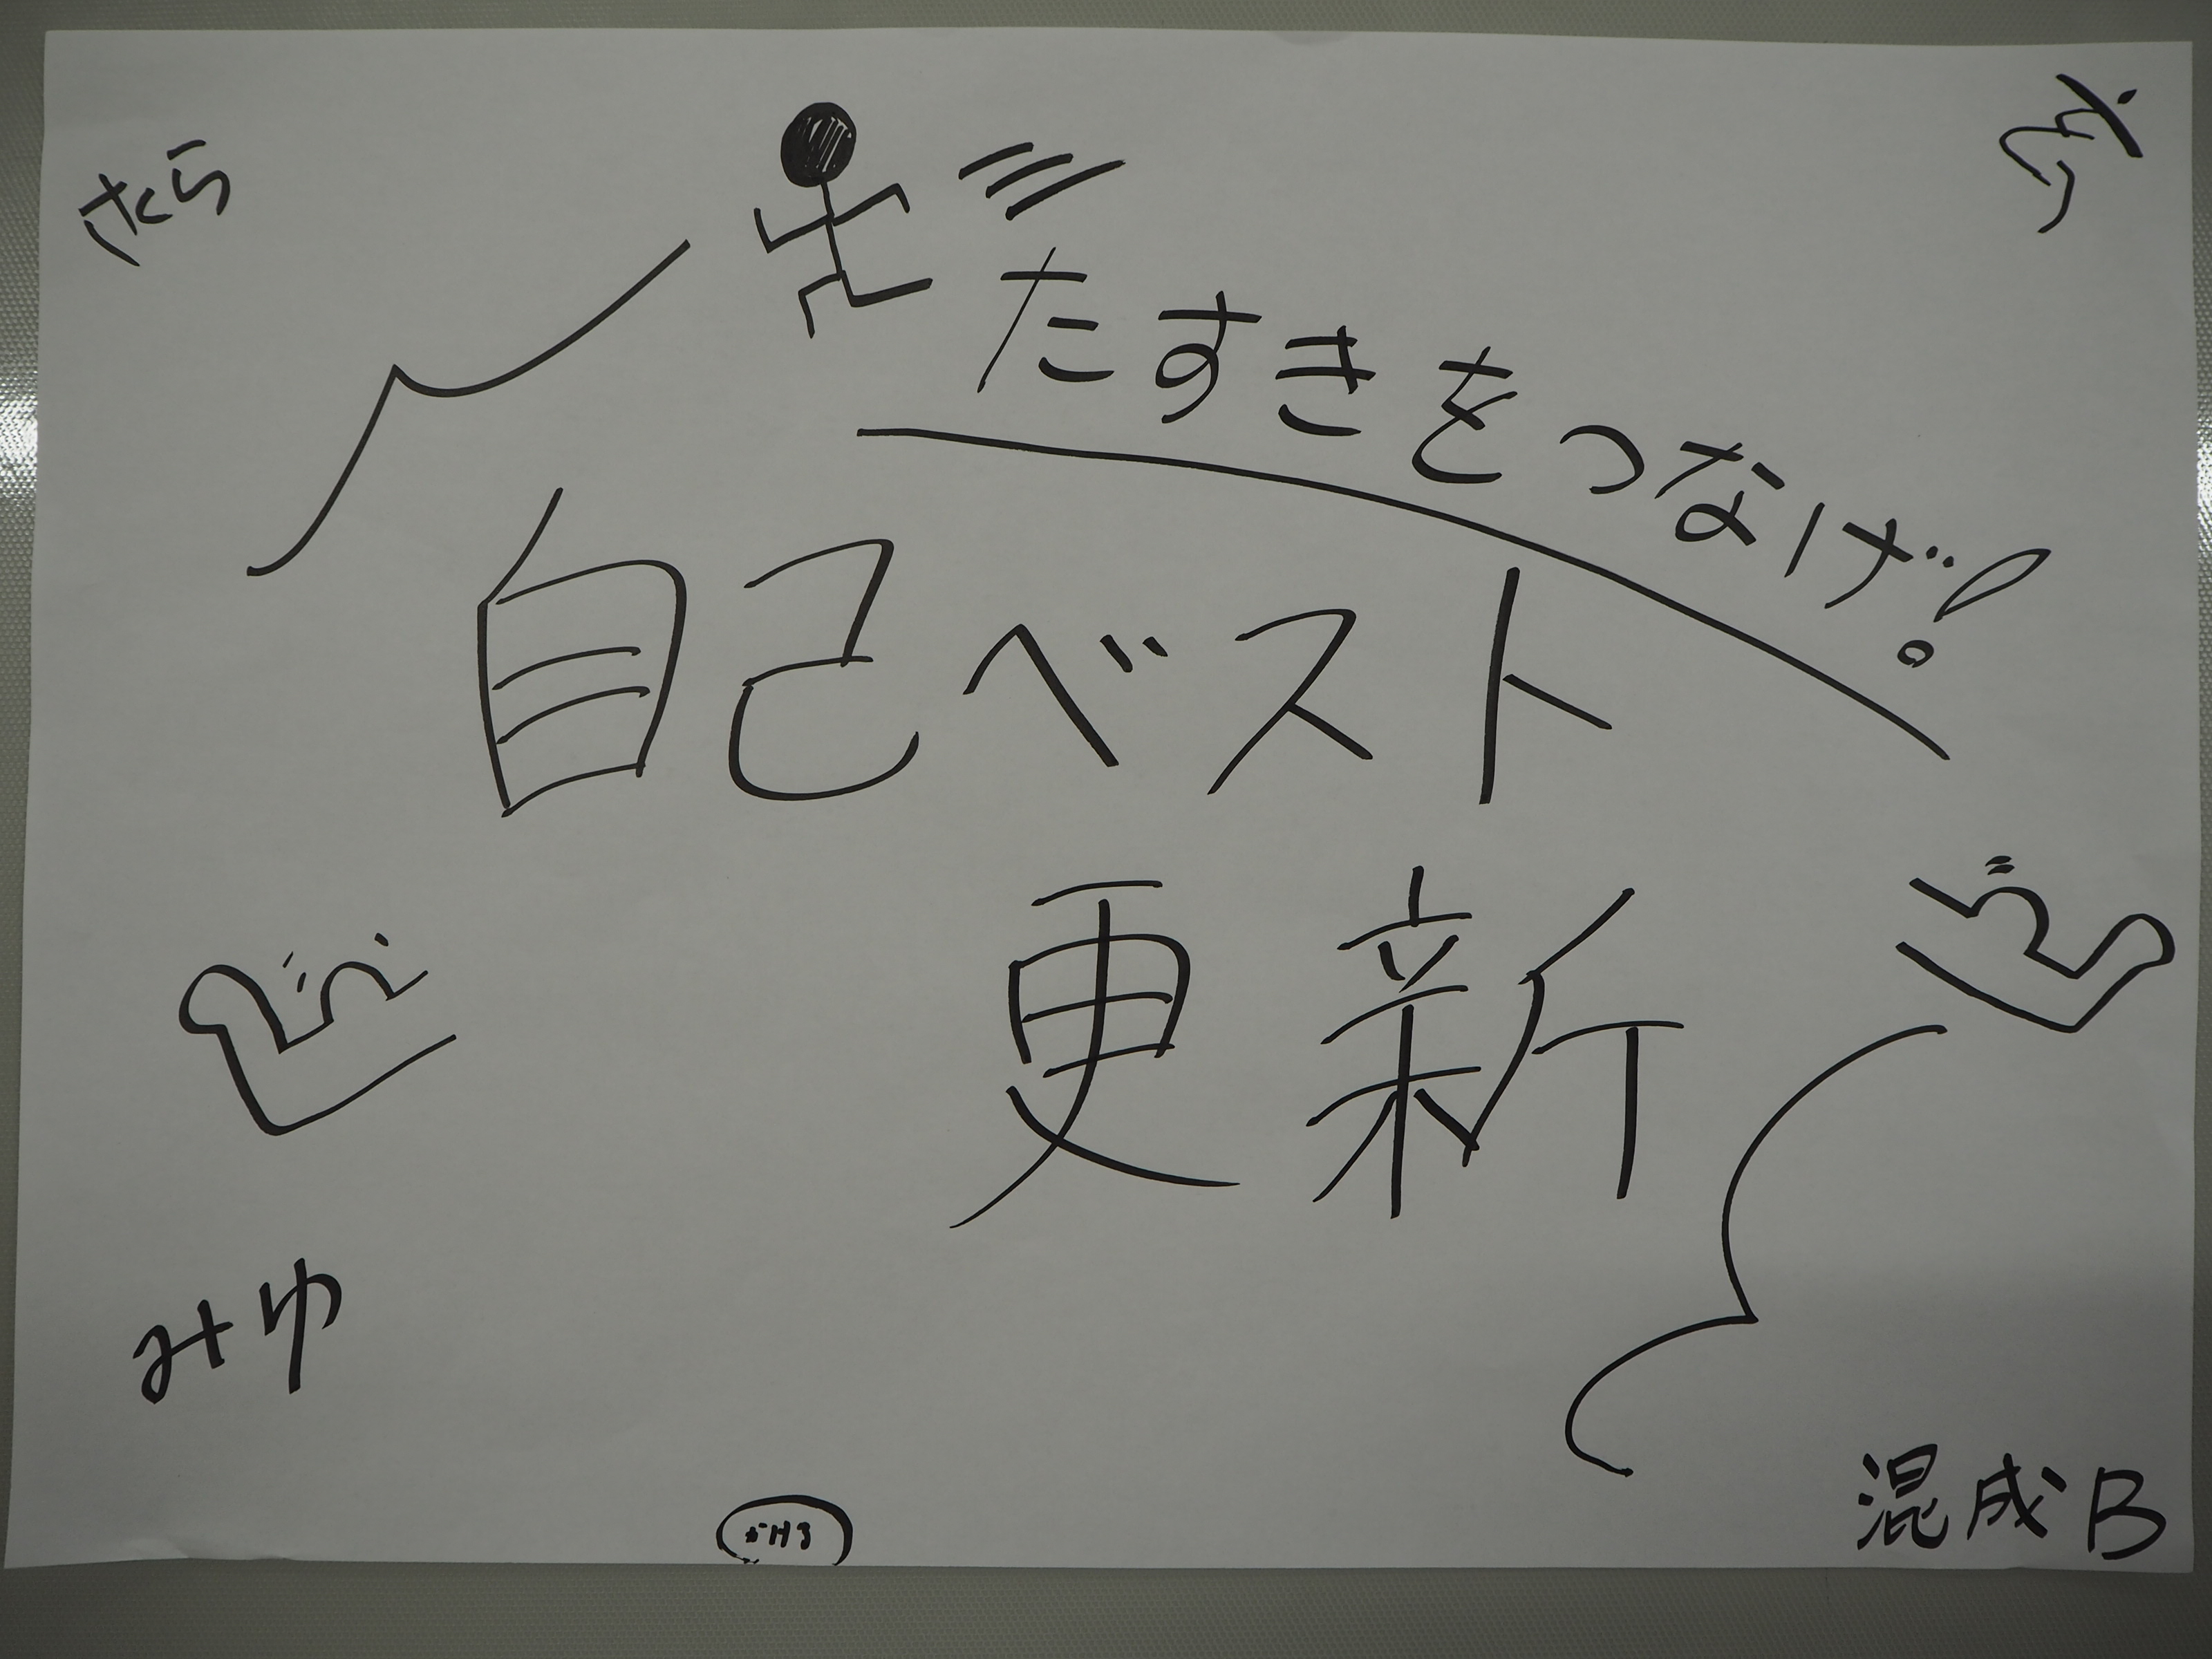 さくら
たすきをつなげ!
自己ベスト
更新
みゆ
混成B